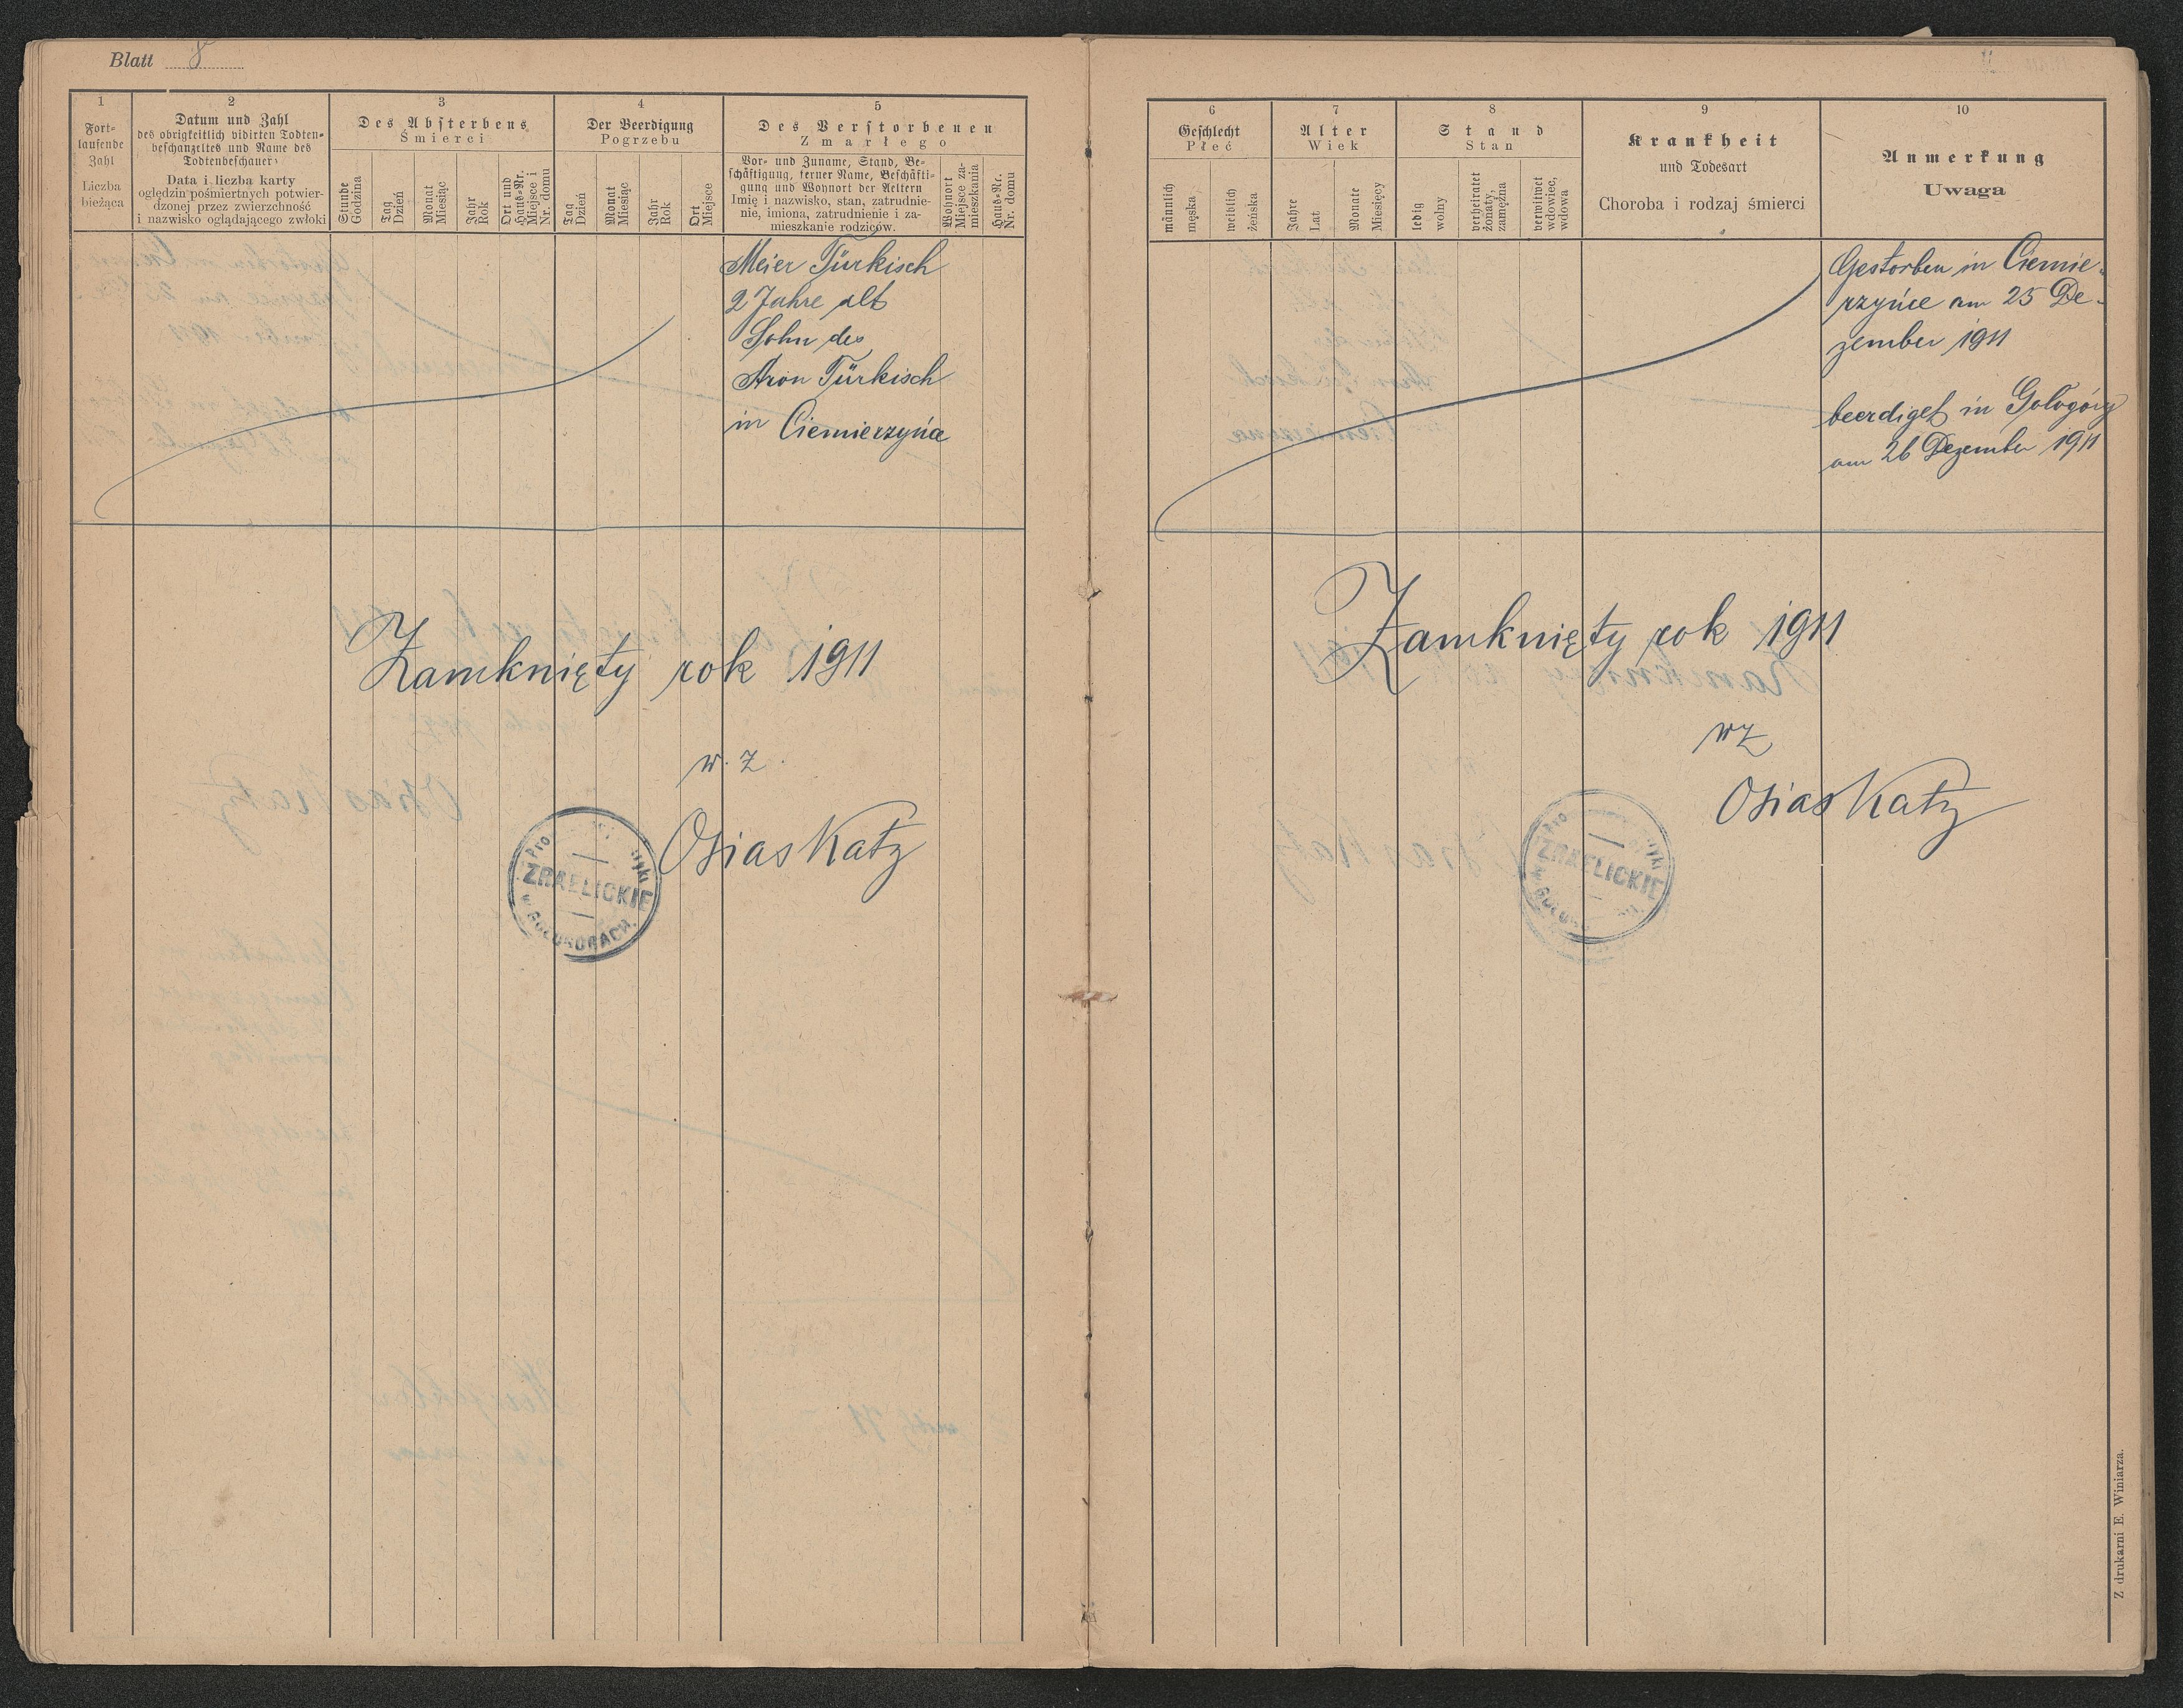 Blatt 8
1
Fort-
laufende
Zahl
Liczba
bieżąca
2
Datum und Zahl
des obrigkeitlich vidirten Todten-
beschauzeltes und Name des
Todtenbeschauers
Data i liczba karty
oględzin pośmiertnych potwier-
dzonej przez zwierzchność
i nazwisko oglądającego zwłoki
3
Des Absterbens
Śmierci
Stunde
Godzina
Tag
Dzień
Monat
Miesiąc
Jahr
Rok
Ort und
Haus-Nr.
Miejsce i
Nr. domu
4
Der Beerdigung
Pogrzebu
Tag
Dzień
Monat
Miesiąc
Jahr
Rok
Ort
Miejsce
5
Des Verstorbenen
Zmarłego
Vor- und Zuname, Stand, Be-
schäftigung, ferner Name, Beschäfti-
gung und Wohnort der Aeltern
Imię i nazwisko, stan, zatrudnie-
nie, imiona, zatrudnienie i za-
mieszkanie rodziców.
Wohnort
Miejsce za-
mieszkania
Haus-Nr.
Nr. domu
Meier Türkisch
2 Jahre alt
Sohn des
Aron Türkisch
in Ciemierzyńce
Zamknięty rok 1911
w. z.
Osias Katz
ZRAELICKIE
6
Geschlecht
Płeć
männlich
męska
weiblich
żeńska
7
Alter
Wiek
Jahre
Lat
Monate
Miesięcy
8
Stand
Stan
ledig
wolny
verheiratet
żonaty,
zamężna
verwitwet
wdowiec,
wdowa
9
Krankheit
und Todesart
Choroba i rodzaj śmierci
10
Anmerkung
Uwaga
Gestorben in Ciemie-
rzyńce am 25 De-
zember 1911
beerdiget in Gologóry
am 26 Dezember 1911
Zamknięty rok 1911
wz
Osias Katz
ZRAELICKIE
Z drukarni E. Winiarza.